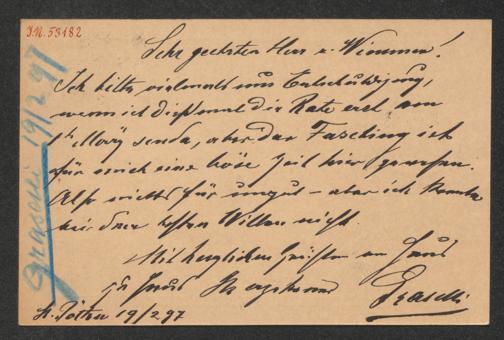 J.N. 53182
Sehr geehrter Herr v. Wimmer!
Ich bitte vielmals um Entschuldigung,
wenn ich dießmal die Rate erst am
senda, aber der Fasching ist
für mich eine böse Zeit hier gewesen.
Also nichts für ungut – aber ich konnte
bei dem besten Willen nicht.
Mit herzlichen Grüßen von Haus
zu Haus Ihr ergebener
Graselli
St. Pölten 19/2 97
Graselli 19/2 97